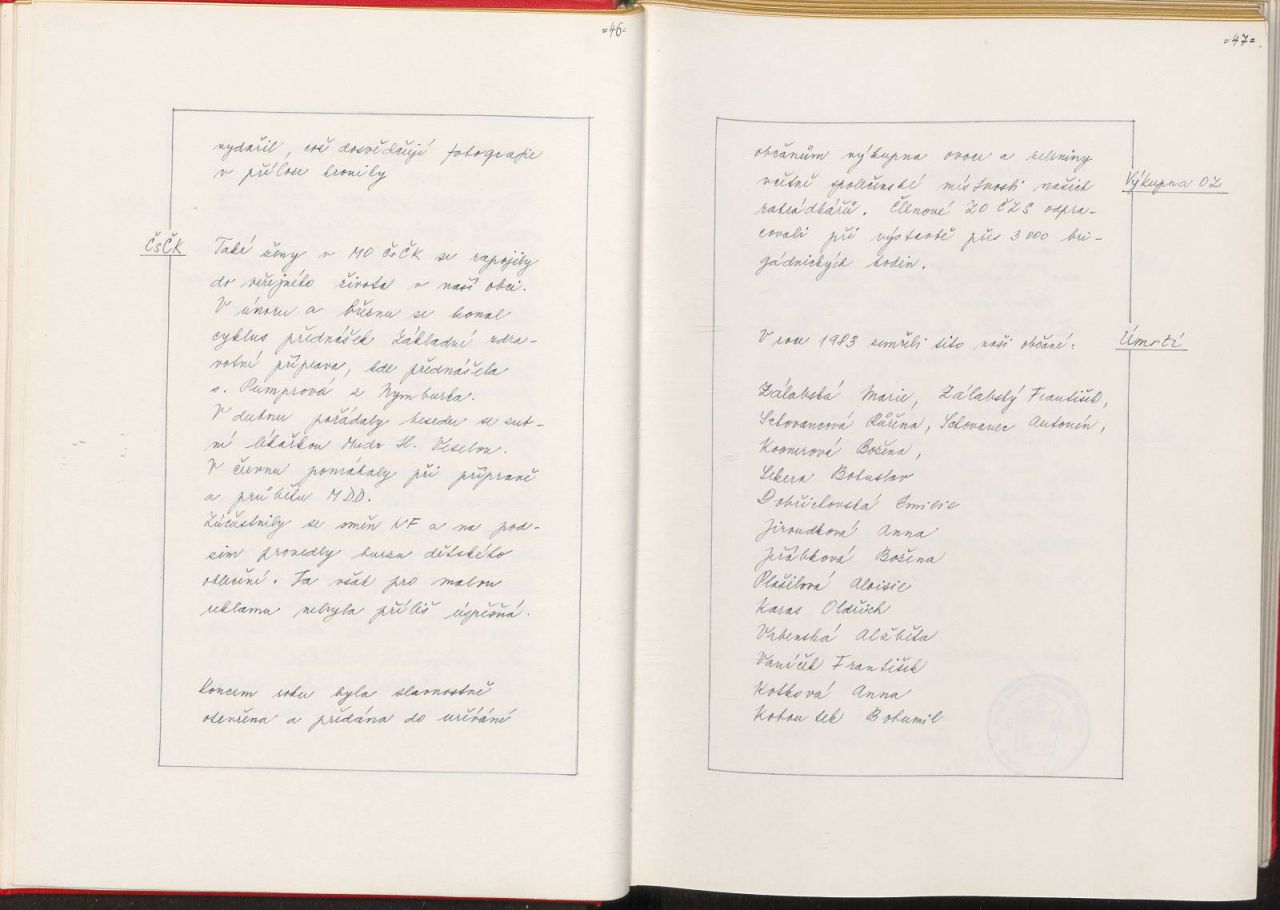 =46=
vydařil, což dosvědčují fotografie
v příloze kroniky
ČsČK
Také ženy v MO ČsČK se zapojily
do veřejného života v naší obci.
V únoru a březnu se konal
cyklus přednášek Základní zdra-
votní příprava, kde přednášela
s. Pumprová z Nymburka.
V dubnu pořádaly besedu se zub-
ní lékařkou Mudr H. Veselou.
V červnu pomáhaly při přípravě
a průběhu MDD.
Zúčastnily se směn NF a na pod-
zim provedly burzu dětského
oblečení. Ta však pro malou
reklamu nebyla příliš úspěšná.
Koncem roku byla slavnostně
otevřena a předána do užívání
=47=
občanům výkupna ovoce a zeleniny
včetně společenské místnosti našich
zahrádkářů. Členové ZO ČZS odpra-
covali při výstavbě přes 3 000 bri-
gádnických hodin.
Výkupna OZ
V roce 1983 zemřeli tito naši občané:
Úmrtí
Zálabská Marie, Zálabský František,
Růžena, Antonín,
Božena,
Sekera Bohuslav
Dobřichovská Emilie
Jiroudková Anna
Jeřábková Božena
Plašilová Aloisie
Karas Oldřich
Vrbenská Alžběta
Vaníček František
Kotková Anna
Kohoutek Bohumil